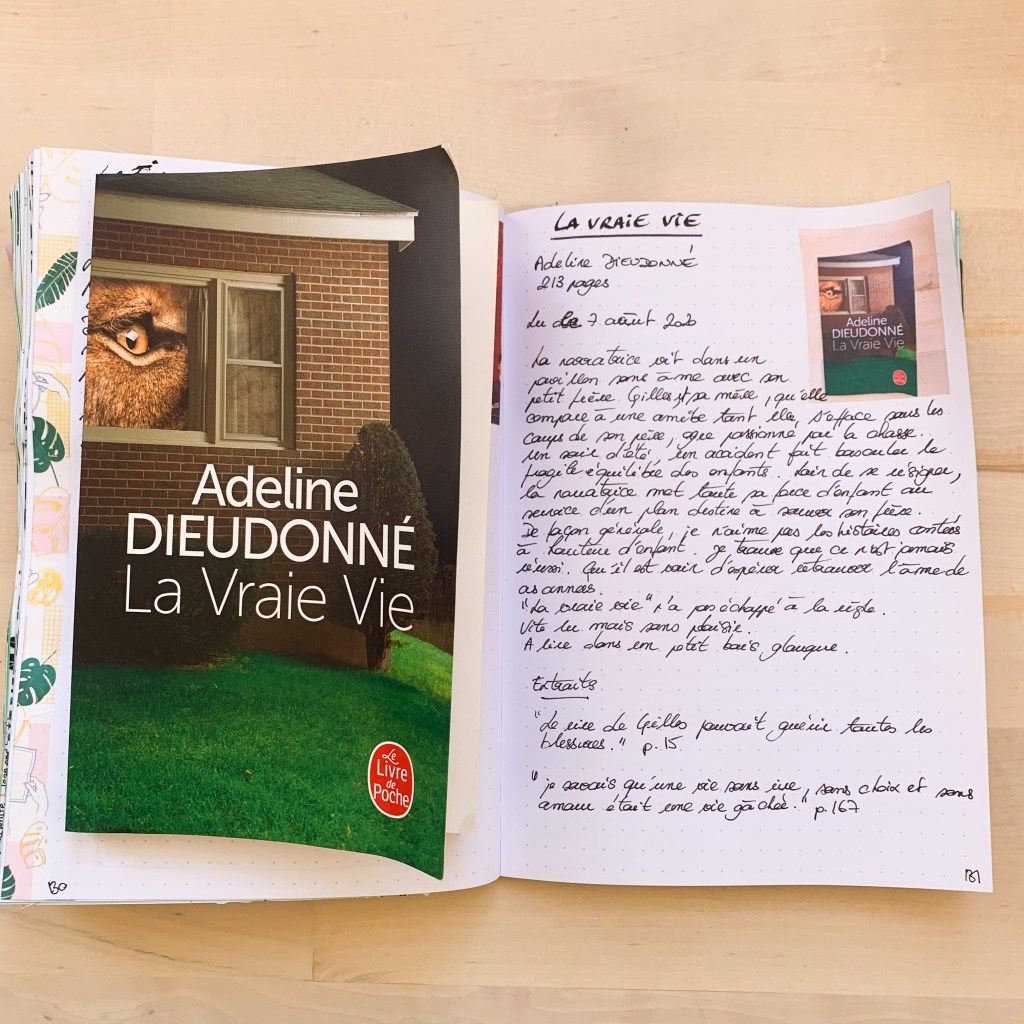 Adeline
DIEUDONNÉ
La Vraie Vie
Le
Livre
de
Poche
130
LA VRAIE VIE
Adeline DIEUDONNÉ
213 pages
Lu le 7 août 2020
Adeline
DIEUDONNÉ
La Vraie Vie
La narratrice vit dans un
pavillon sans âme avec son
petit frère Gilles et sa mère, qu'elle
compare à une amibe tant elle s'efface sous les
coups de son père, ogre passionné par la chasse.
Un soir d'été, un accident fait basculer le
fragile équilibre des enfants. Loin de se résigner,
la narratrice met toute sa force d'enfant au
service d'un plan destiné à sauver son frère.
De façon générale, je n'aime pas les histoires contées
à hauteur d'enfant. Je trouve que ce n'est jamais
réussi. Qu'il est vain d'espérer retrouver l'âme de
ces années.
"La vraie vie" n'a pas échappé à la règle.
Vite lu mais sans plaisir.
A lire dans un petit bois glauque.
Extraits
"Le rire de Gilles pouvait guérir toutes les
blessures." p.15
"je savais qu'une vie sans rire, sans choix et sans
amour était une vie gâchée." p.167
131